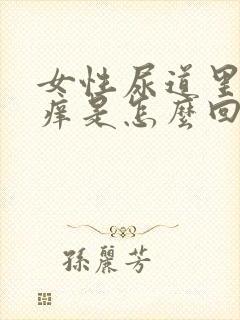 女性尿道里
痒是怎麼回
孫麗芳